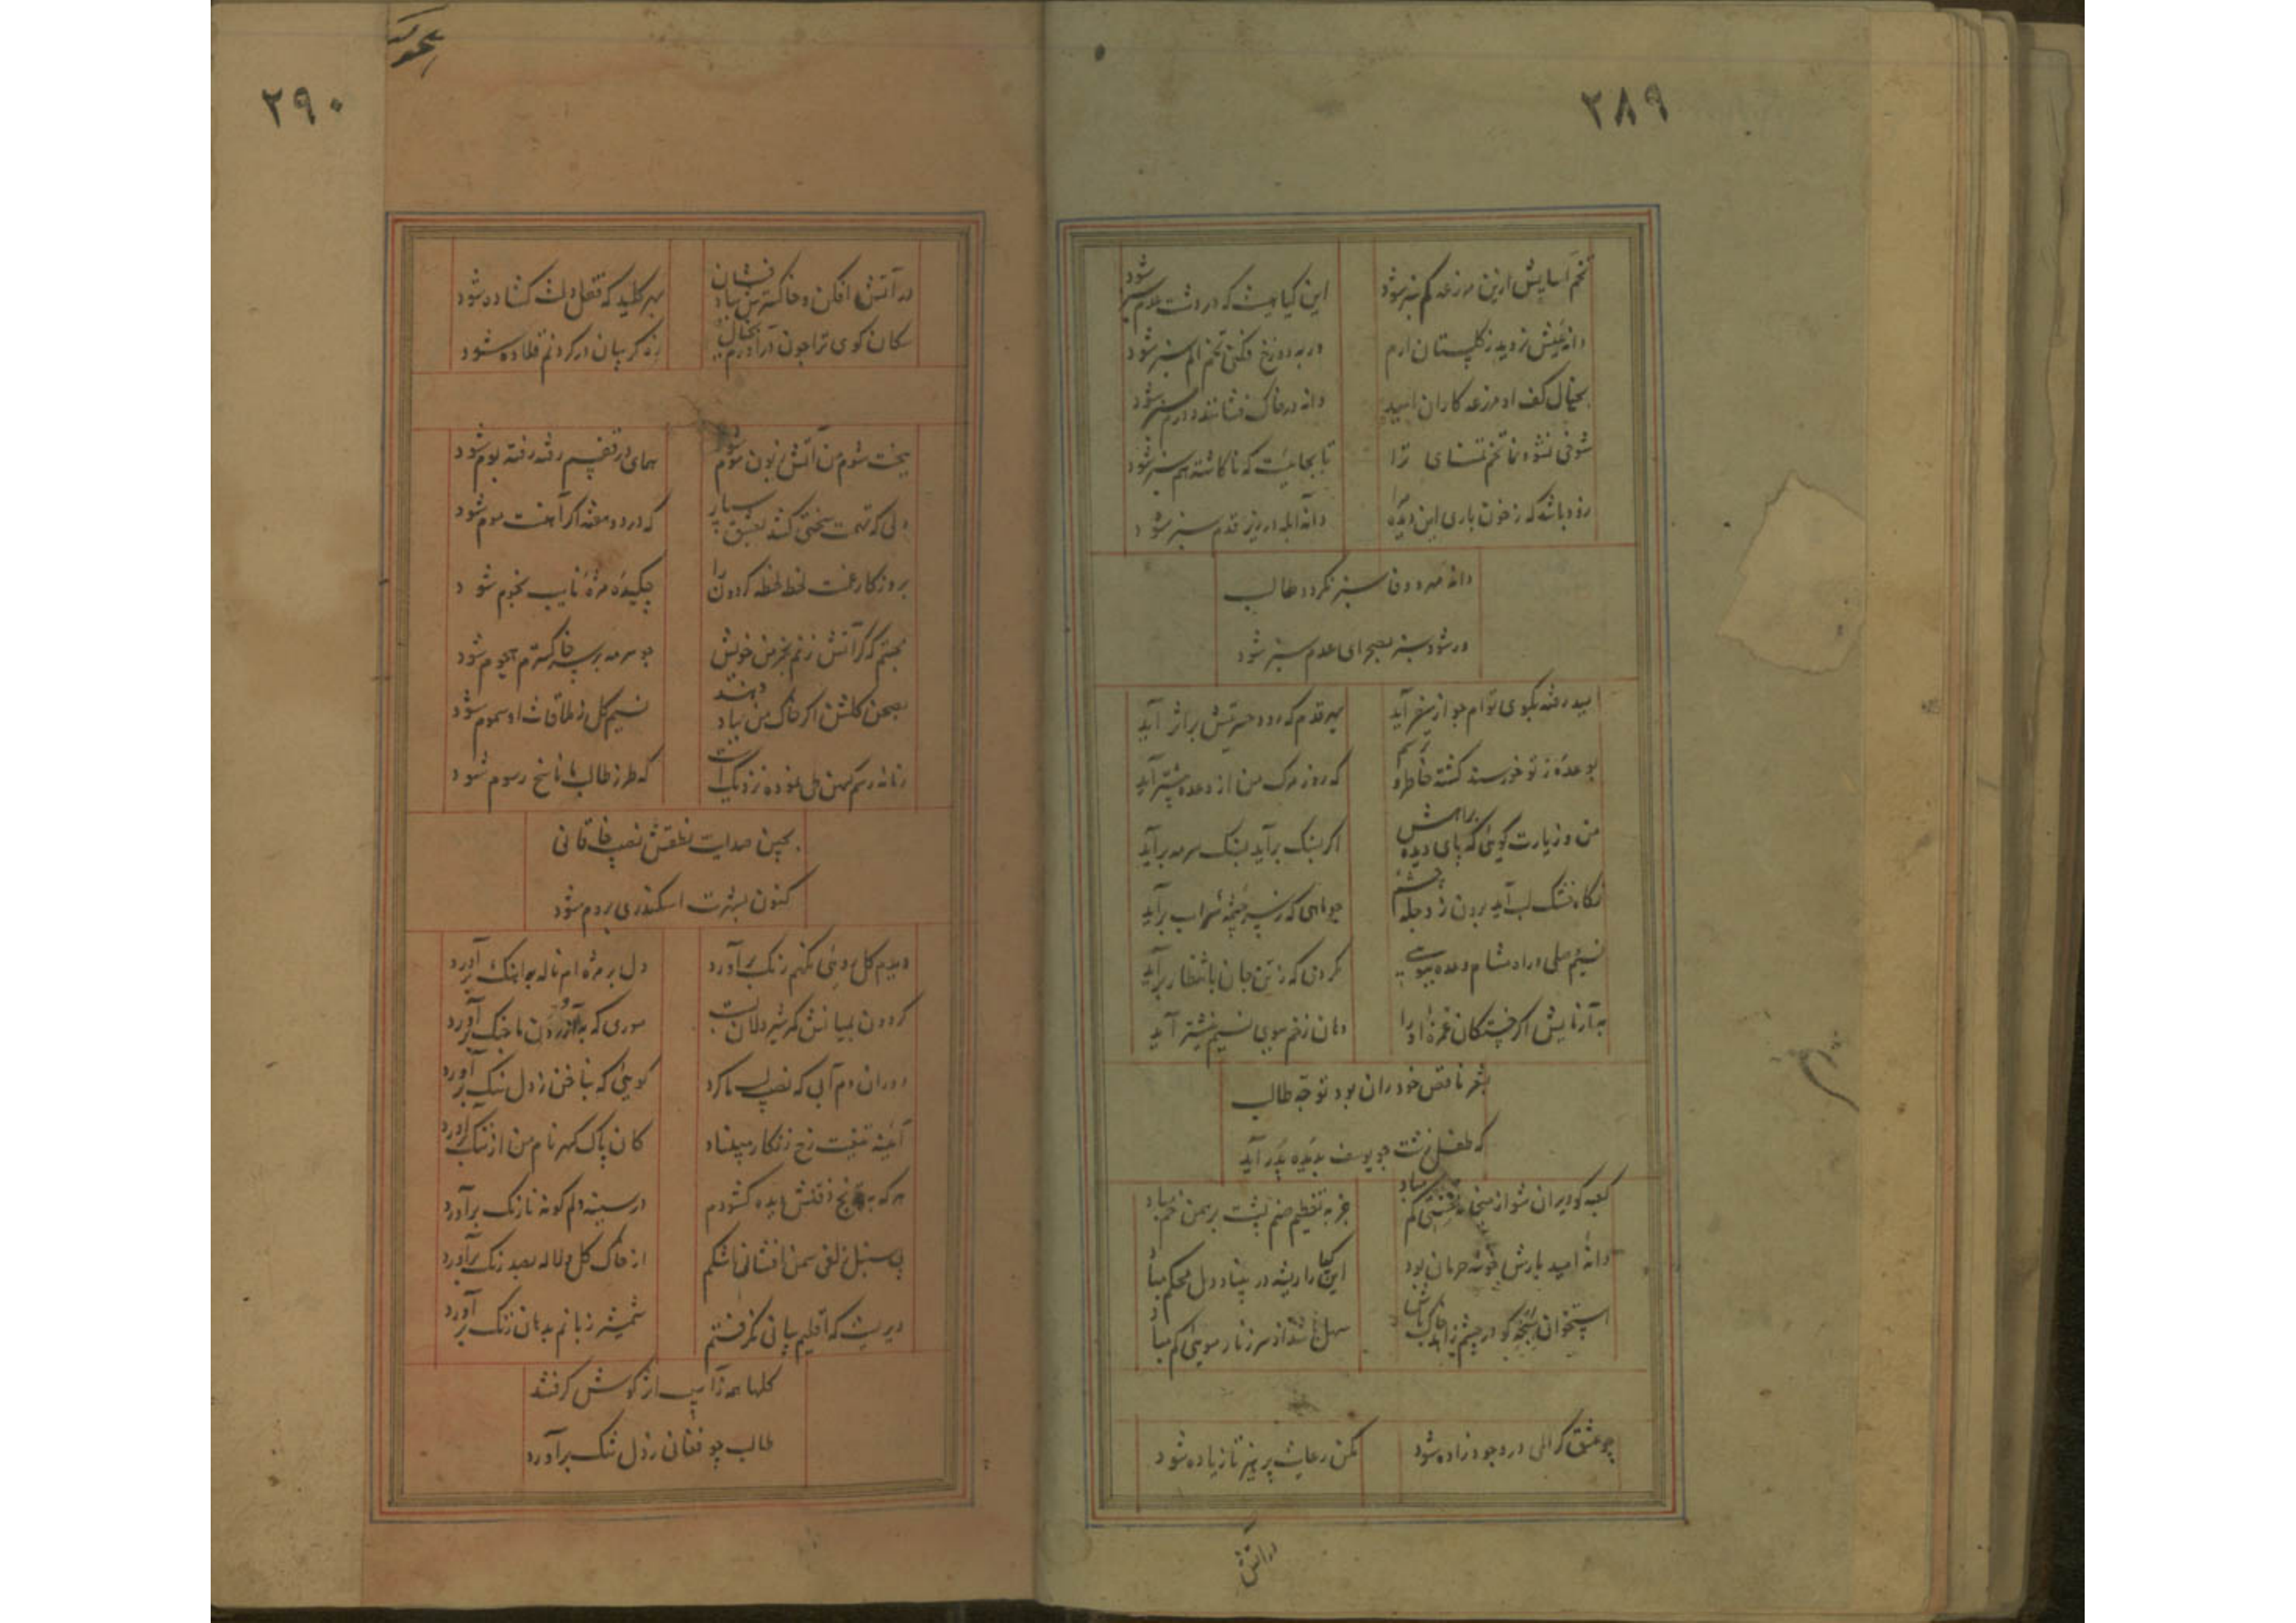 ۲۸۹
تخم آسایش ازین مزرعه کم سبز شود
این کیاهیست که در دشت عدم سبز شود
دانه عیش نروید ز کلستان ارم
در به دوزخ فکنی تخم الم سبز شود
بخیال کف او مزرعه کاران امید
دانه در خاک فشانند و درم سبز شود
شوخی نشو و نما تخم تمنای ترا
تا بجاییست که ناکاشته هم سبز شود
زود باشد که ز خون باری این دیده را
دانه آبله در زیر قدم سبز شود
دانه مهر و وفا سبز نکردد طالب
ور شود سبز بصحرای عدم سبز شود
امید رفته بکوی توام چو از سفر آید
بهر قدم که رود حسرتیش بر اثر آید
بوعده ز تو خورسند کشته خاطر و ترسم
که روز مرک من از وعده پیشتر آید
من و زیارت کویی که پای دیده براهش
اکر بسنک برآید بسنک سرمه برآید
نکاه خشک لب آید برون ز دجله چشمم
چو ماهی که ز سرچشمه سراب برآید
نسیم صلی در اد مشام وعده ببویی
مکردن که ز تن جان بانتظار برآید
به آزمایش اکر خستکان غمزه او را
دهان زخم ببوی نسیم نیشتر آید
بشعر ناقص خود ران بود توجه طالب
که طفل زشت چو یوسف بدیده پدر آید
کعبه کو ویران شو از سنی کم مباد
جز به تعظیم صنم پشت برهمن خم مباد
دانه امید بارش خوشه حرمان بود
این کیا را ریشه در بنیاد دل محکم مباد
استخوان سبحه کو در چشم زاهد خاک باش
سهل باشد از سر زنار مویی کم مباد
چو عشق کرالمی در وجود زاده شود
مکن رعایت پرهیز تا زیاده شود
در آتش
۲۹۰
در آتش افکن و خاکسترش بباد فشان
بهر کلید که قفل دلت کشاده شود
سکان کوی ترا چون درآورم بخیال
زه کریبان در کردنم قلاده شود
ز بخت شوم من آتش زبون شود
همای در قفسم رفته رفته بوم شود
دلی که تهمت سختی کشد بعشق سپار
که در دو هفته اکر آهنست موم شود
بروزکار غمت لحظه لحظه کردون را
چکیده مژه نایب نجوم شود
بجستم که کر آتش زنم بخرمن خویش
چو سرمه بر سر خاکسترم هجوم شود
بصحن کلشن اکر خاک من بباد دهند
نسیم کل ز ملاقات او سموم شود
زمانه رسم کهن طی نموده نزدیک است
که طرز طالب ما ناسخ رسوم شود
بچین صدایت نطقش نصیب خاقانی
کنون بشهرت اسکندری بروم شود
دیدم کل رویی نکهم رنک برآورد
دل بر مژه ام ناله به آهنک برآورد
کردون بمیانش کمر شیردلان بست
موری که به آزردن ما جنک برآورد
دوران دم آبی که نصیب لب ما کرد
کویی که بناخن ز دل سنک برآورد
آیینه تیغیست رخ زنکار میفتاد
کان پاک کهر نام من از ننک برآورد
هر که به ترنج ذقنش دیده کشودم
در سینه دلم کونه نارنک برآورد
بی سنبل زلفی سمن افشانی اشکم
از خاک کل و لاله بصد رنک برآورد
دیریست که اقلیم بیانی نکرفتم
شمشیر زبانم بدهان زنک برآورد
کلها همه را پنبه از کوش کرفتند
طالب چو فغانی ز دل تنک برآورد